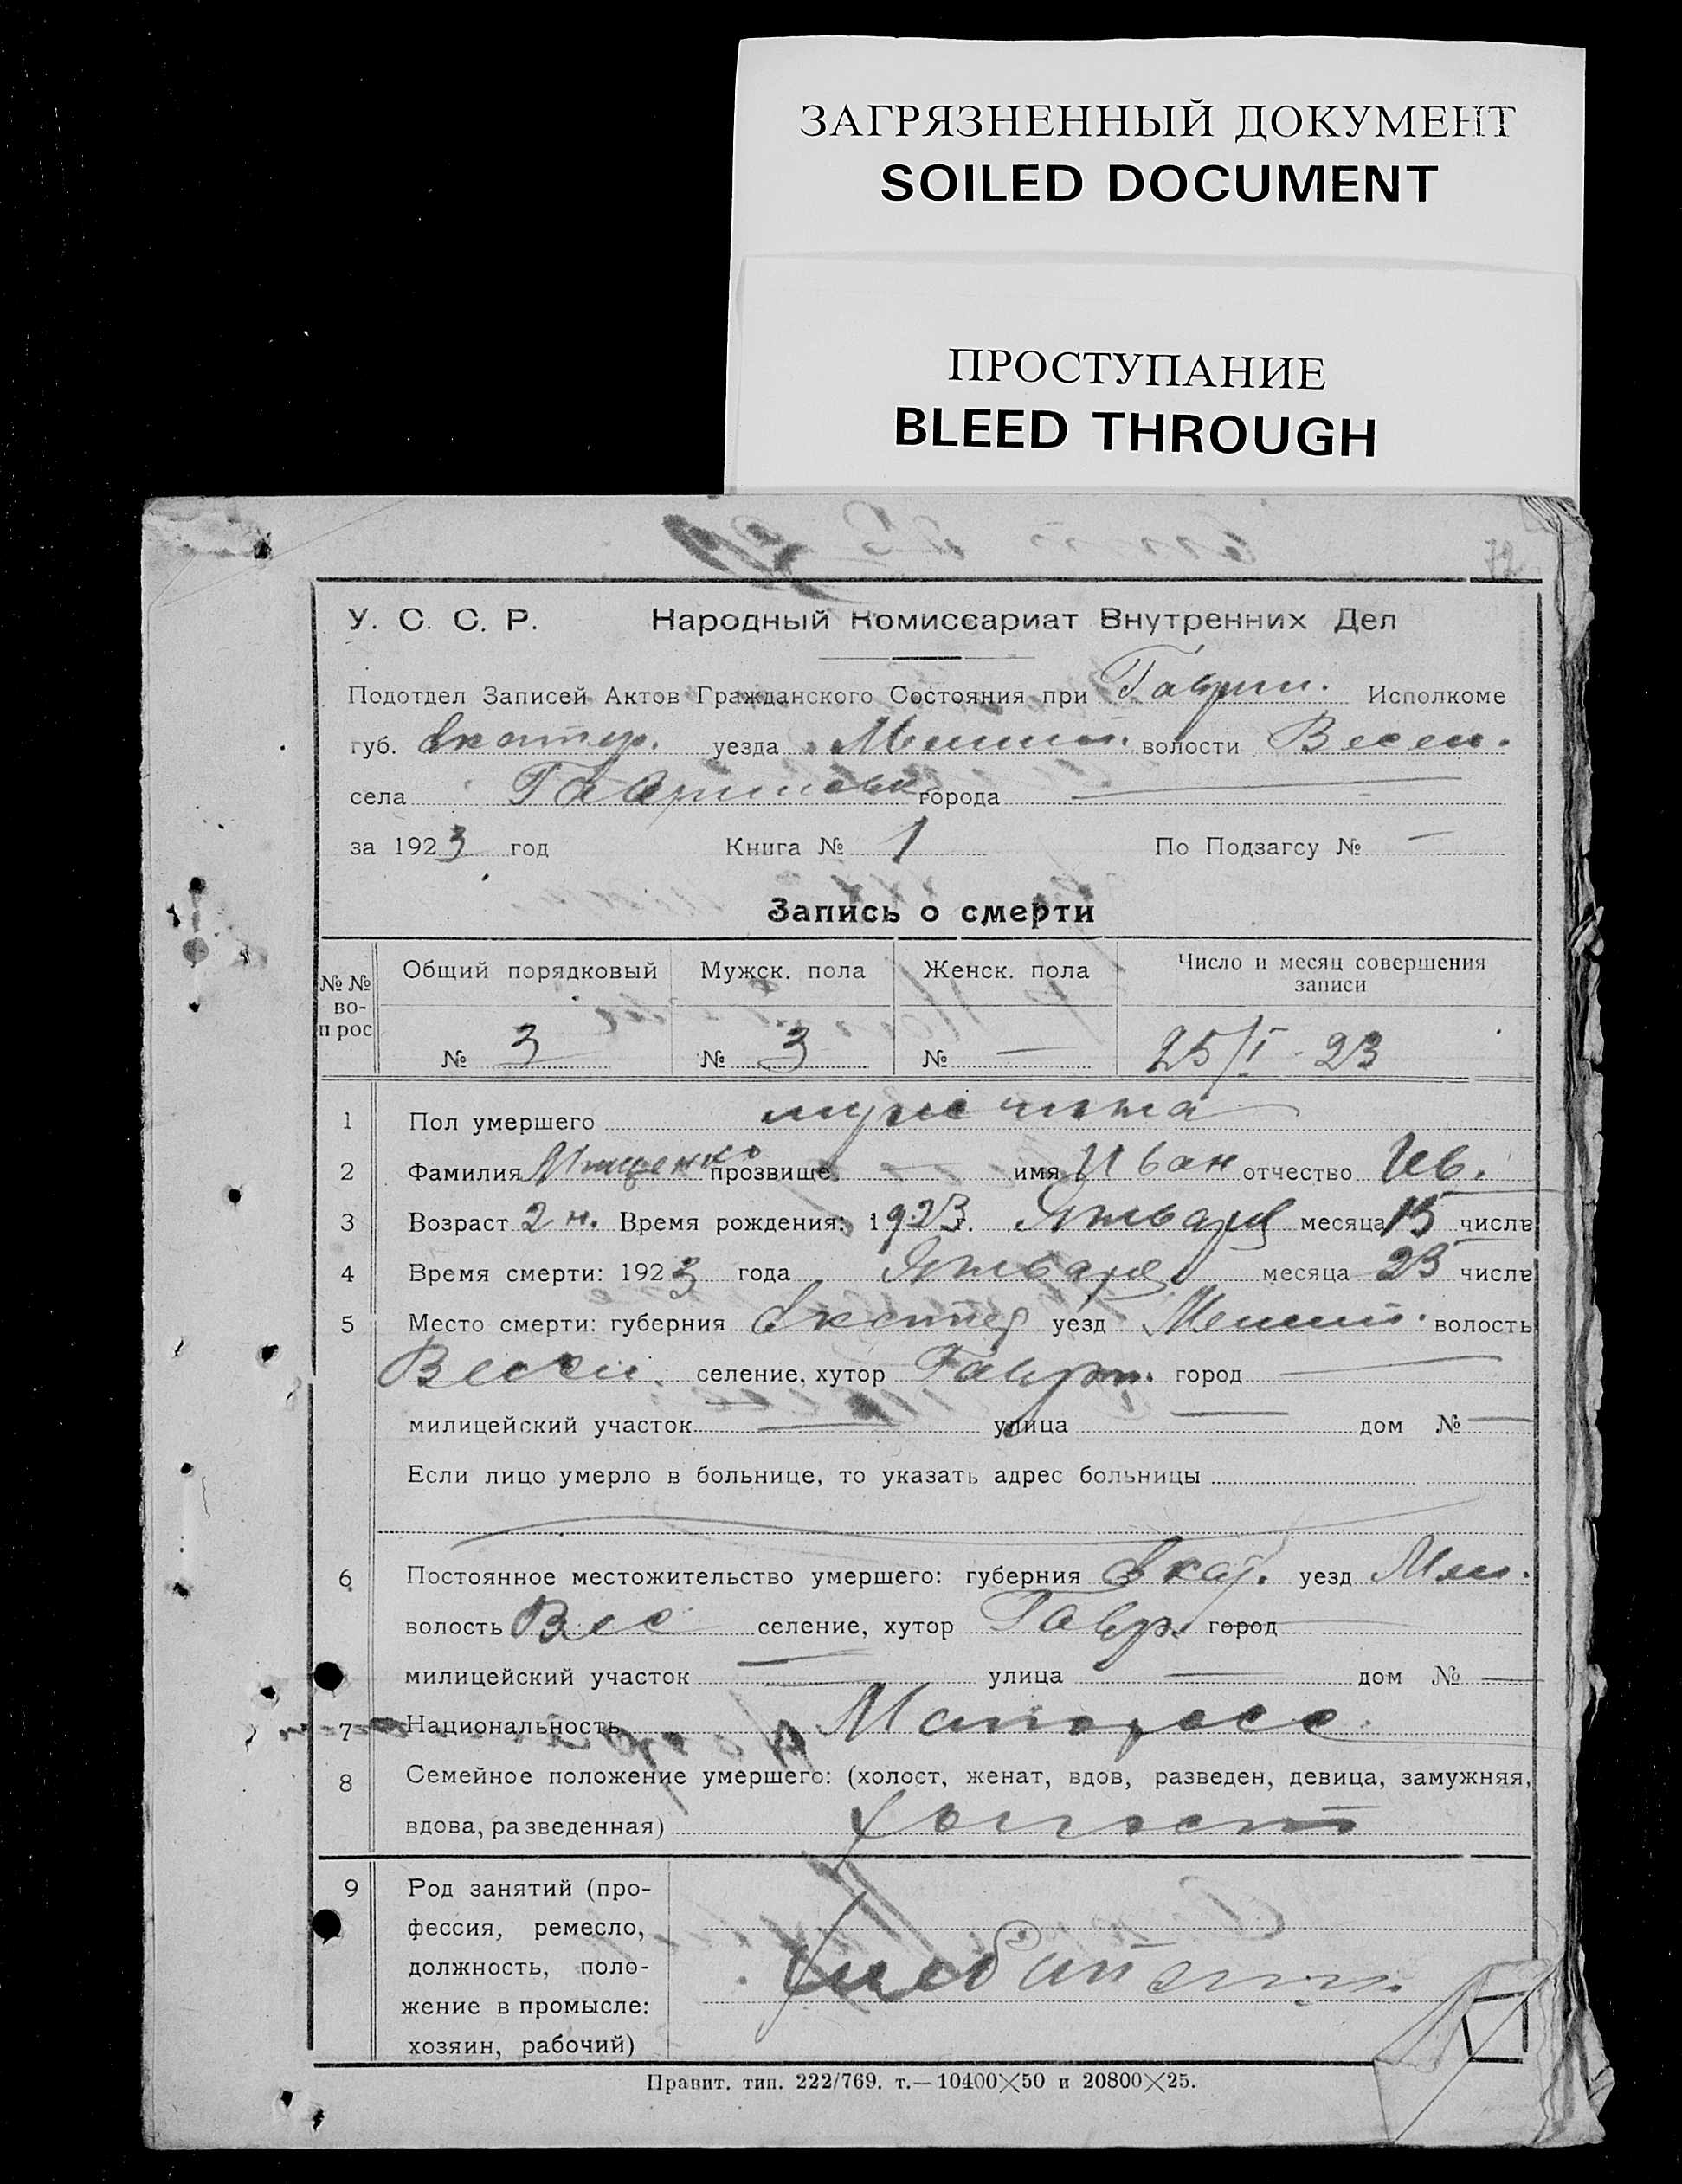 ЗАГРЯЗНЕННЫЙ ДОКУМЕНТ
SOILED DOCUMENT
ПРОСТУПАНИЕ
BLEED THROUGH
У. С. С. Р. Народный Комиссариат Внутренних Дел
Подотдел Записей Актов Гражданского Состояния при Гаврил. Исполкоме
губ. Екатер. уезда волости Весел.
села города
за 1923 год Книга № 1 По Подзагсу № —
Запись о смерти
№№ во-прос Общий порядковый Мужск. пола Женск. пола Число и месяц совершения записи
№ 3 № 3 № — 25/I - 23
1 Пол умершего мужчина
2 Фамилия Мищенко прозвище — имя Иван отчество Ив.
3 Возраст 2 н. Время рождения: 1923 г. Январь месяца 15 числа
4 Время смерти: 1923 года Январь месяца 23 числа
5 Место смерти: губерния Екатер уезд волость
Весел. селение, хутор Гаврил. город —
милицейский участок — улица — дом № —
Если лицо умерло в больнице, то указать адрес больницы
6 Постоянное местожительство умершего: губерния Екат. уезд
волость Вес селение, хутор Гавр. город —
милицейский участок — улица — дом № —
7 Национальность Малоросс.
8 Семейное положение умершего: (холост, женат, вдов, разведен, девица, замужняя,
вдова, разведенная) холост
9 Род занятий (про-
фессия, ремесло,
должность, поло- хлебопаш.
жение в промысле:
хозяин, рабочий)
Правит. тип. 222/769. т.—10400×50 и 20800×25.